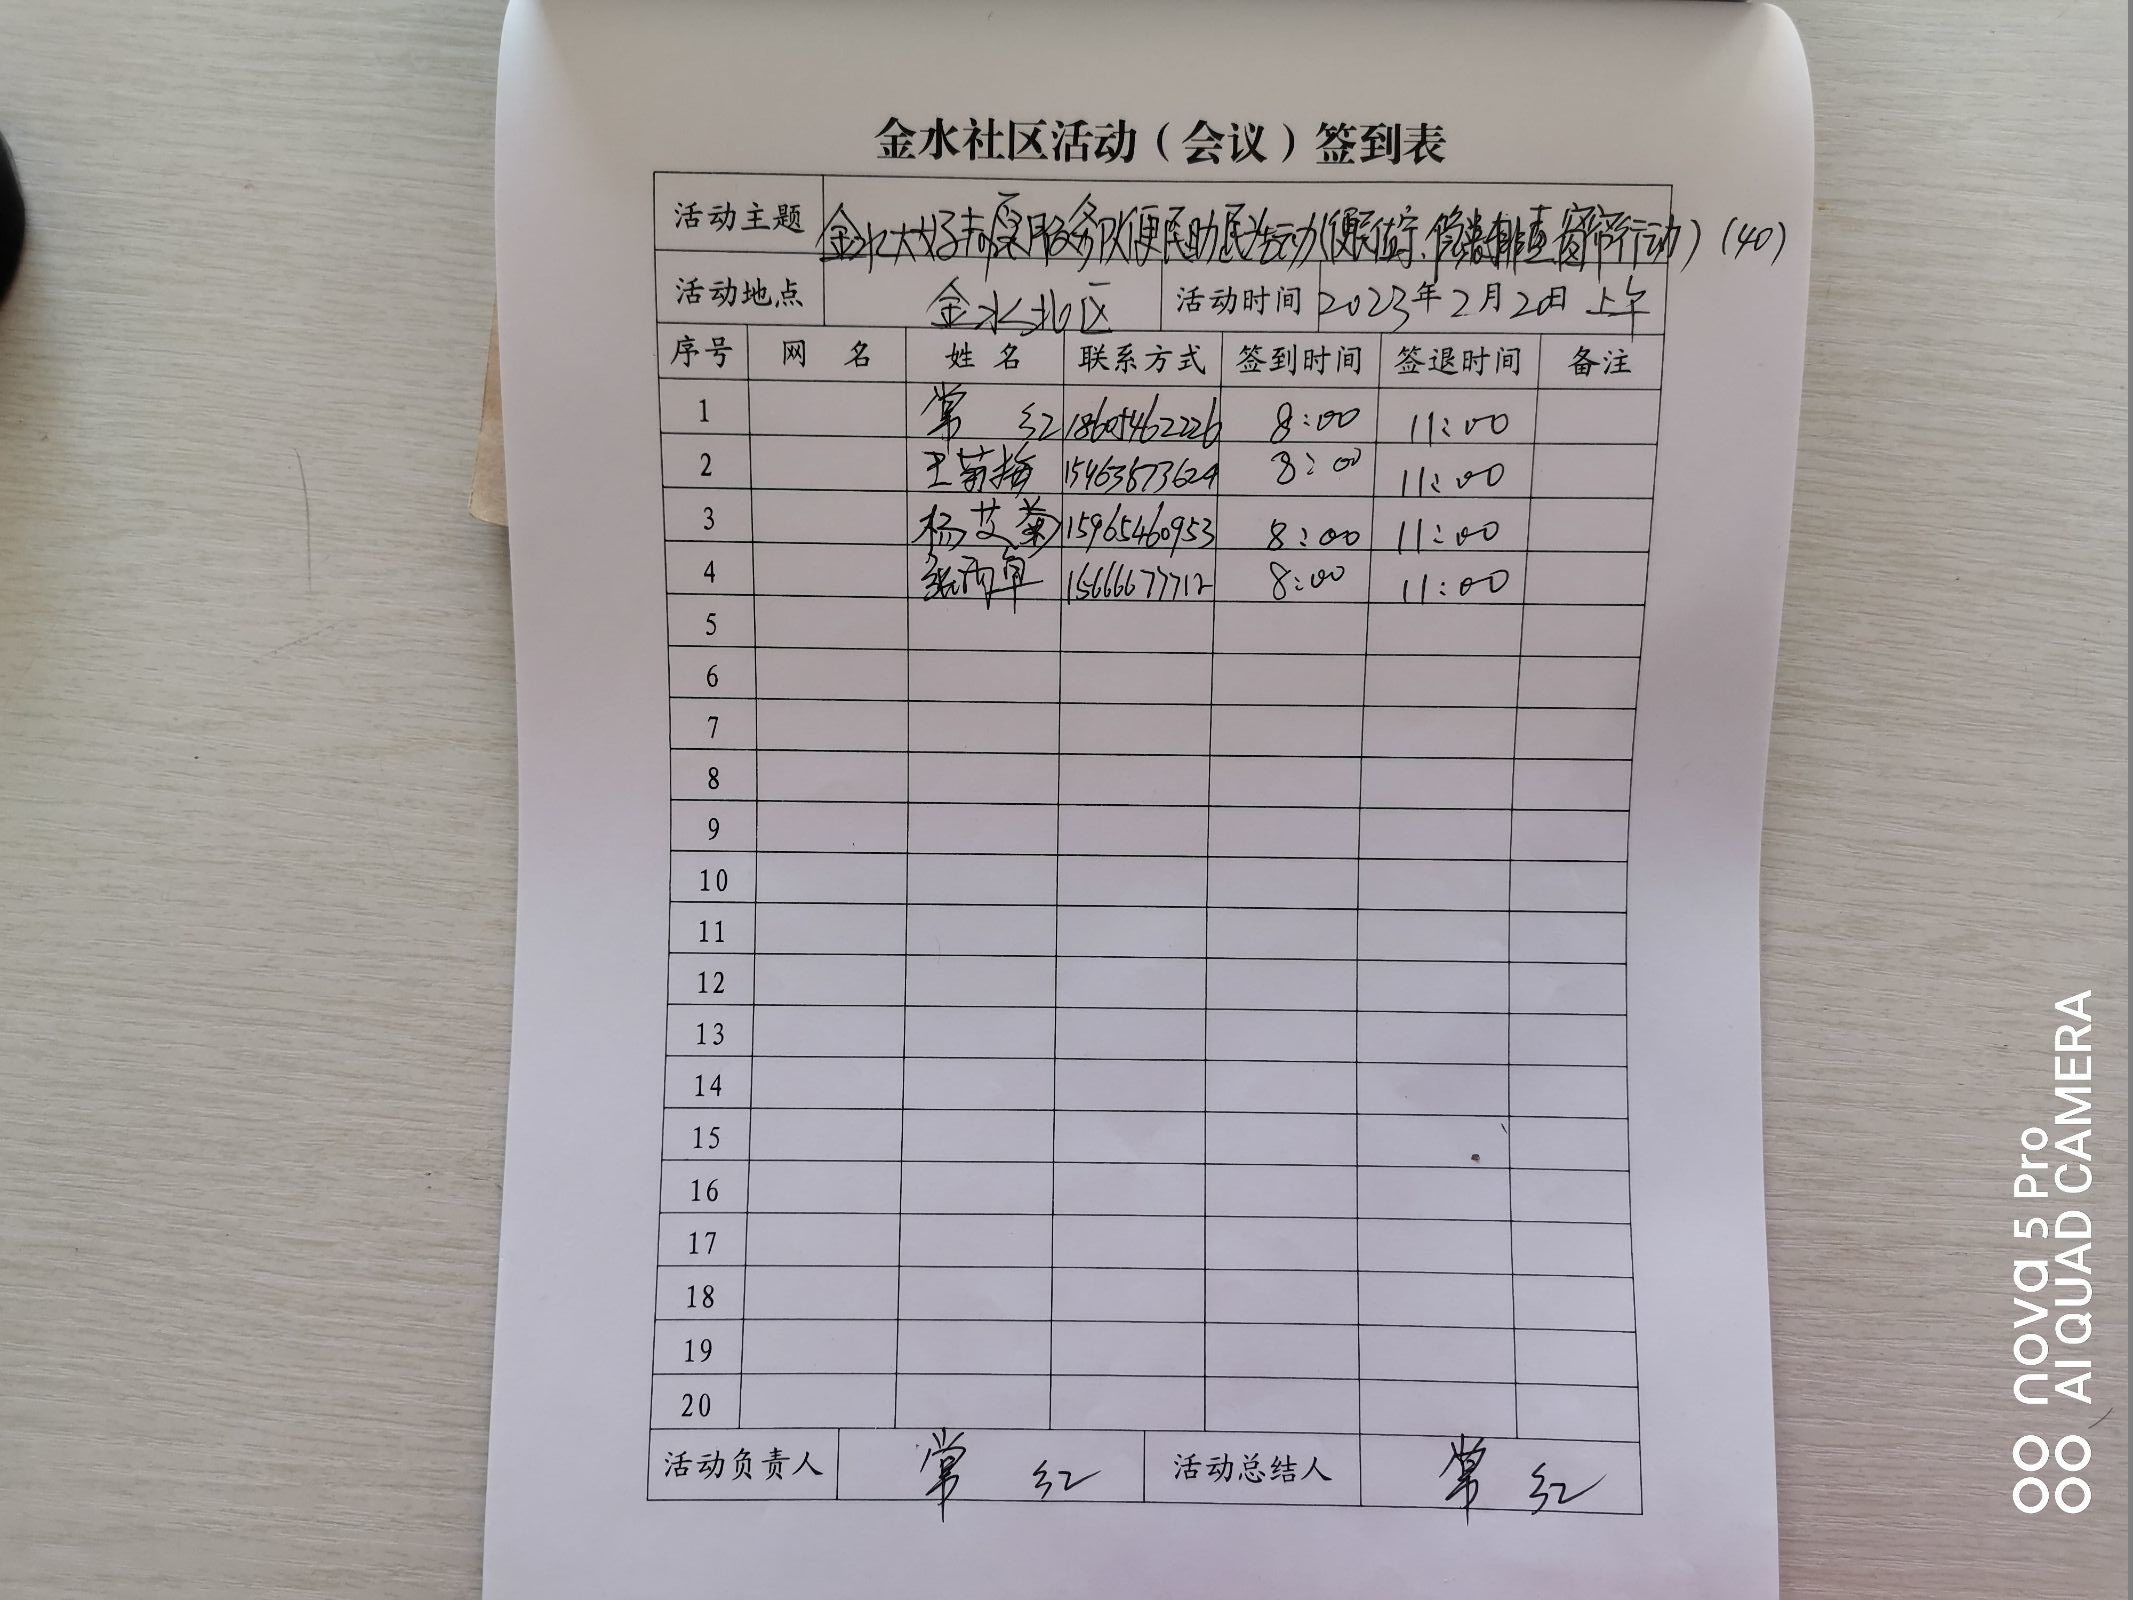 金水社区活动（会议）签到表
活动主题 金水大好志愿服务队便民助民活动(便民值守、隐患排查 窗帘行动)(40)
活动地点 金水北区 活动时间 2023年2月20日 上午
序号 网 名 姓 名 联系方式 签到时间 签退时间 备注
1 常 红 18605462226 8:00 11:00
2 王菊梅 15463873624 8:00 11:00
3 杨艾菊 15965460953 8:00 11:00
4 15666677712 8:00 11:00
5
6
7
8
9
10
11
12
13
14
15
16
17
18
19
20
活动负责人 常 红 活动总结人 常 红
nova 5 Pro
AI QUAD CAMERA